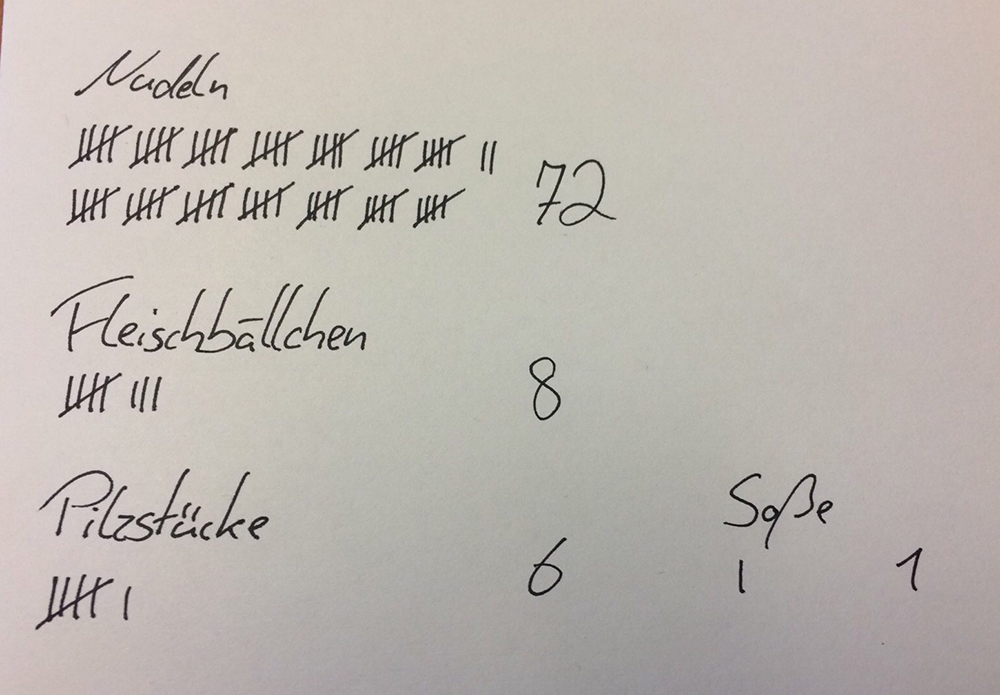 Nudeln
𝍸 𝍸 𝍸 𝍸 𝍸 𝍸 𝍸 ||
𝍸 𝍸 𝍸 𝍸 𝍸 𝍸 𝍸 72
Fleischbällchen
𝍸 ||| 8
Pilzstücke
𝍸 | 6
Soße
| 1